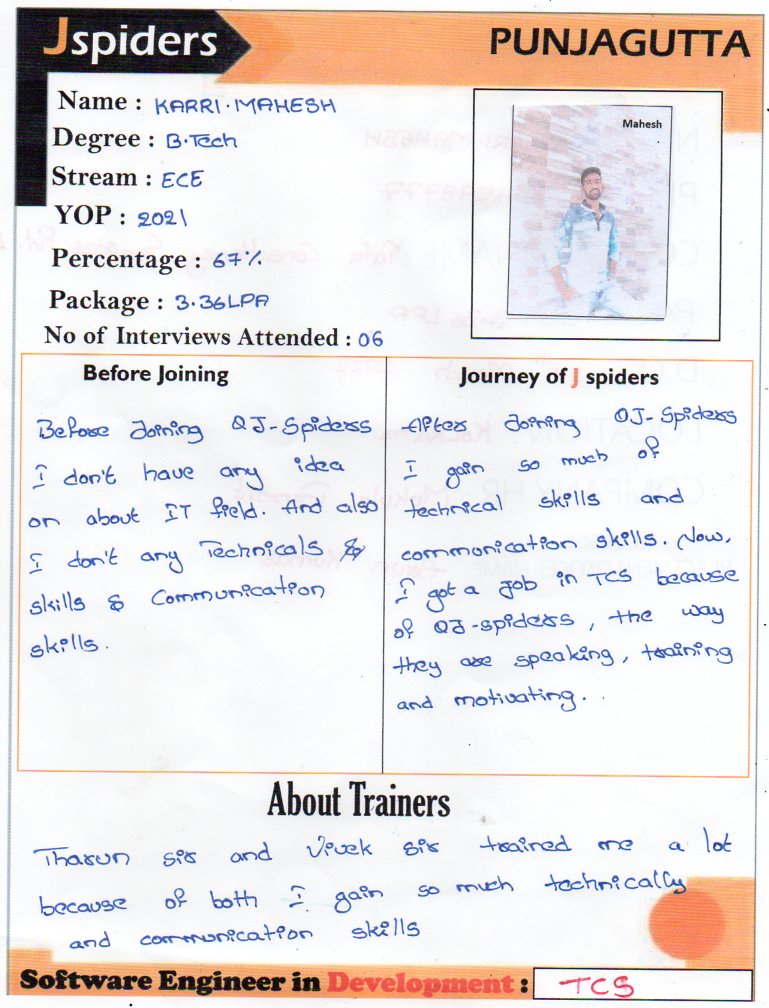 Jspiders
PUNJAGUTTA
Name : KARRI.MAHESH
Degree : B.Tech
Stream : ECE
YOP : 2021
Percentage : 67%
Package : 3.36LPA
No of Interviews Attended : 06
Mahesh
Before Joining
Before Joining QJ-Spiders
I don't have any idea
on about IT field. And also
I don't any Technicals &
skills & Communication
skills.
Journey of J spiders
After Joining QJ-Spiders
I gain so much of
technical skills and
communication skills. Now,
I got a Job in TCS because
of QJ-spiders, the way
they are speaking, training
and motivating..
About Trainers
Tharun sir and Vivek sir trained me a lot
because of both I gain so much technically
and communication skills
Software Engineer in Development : TCS